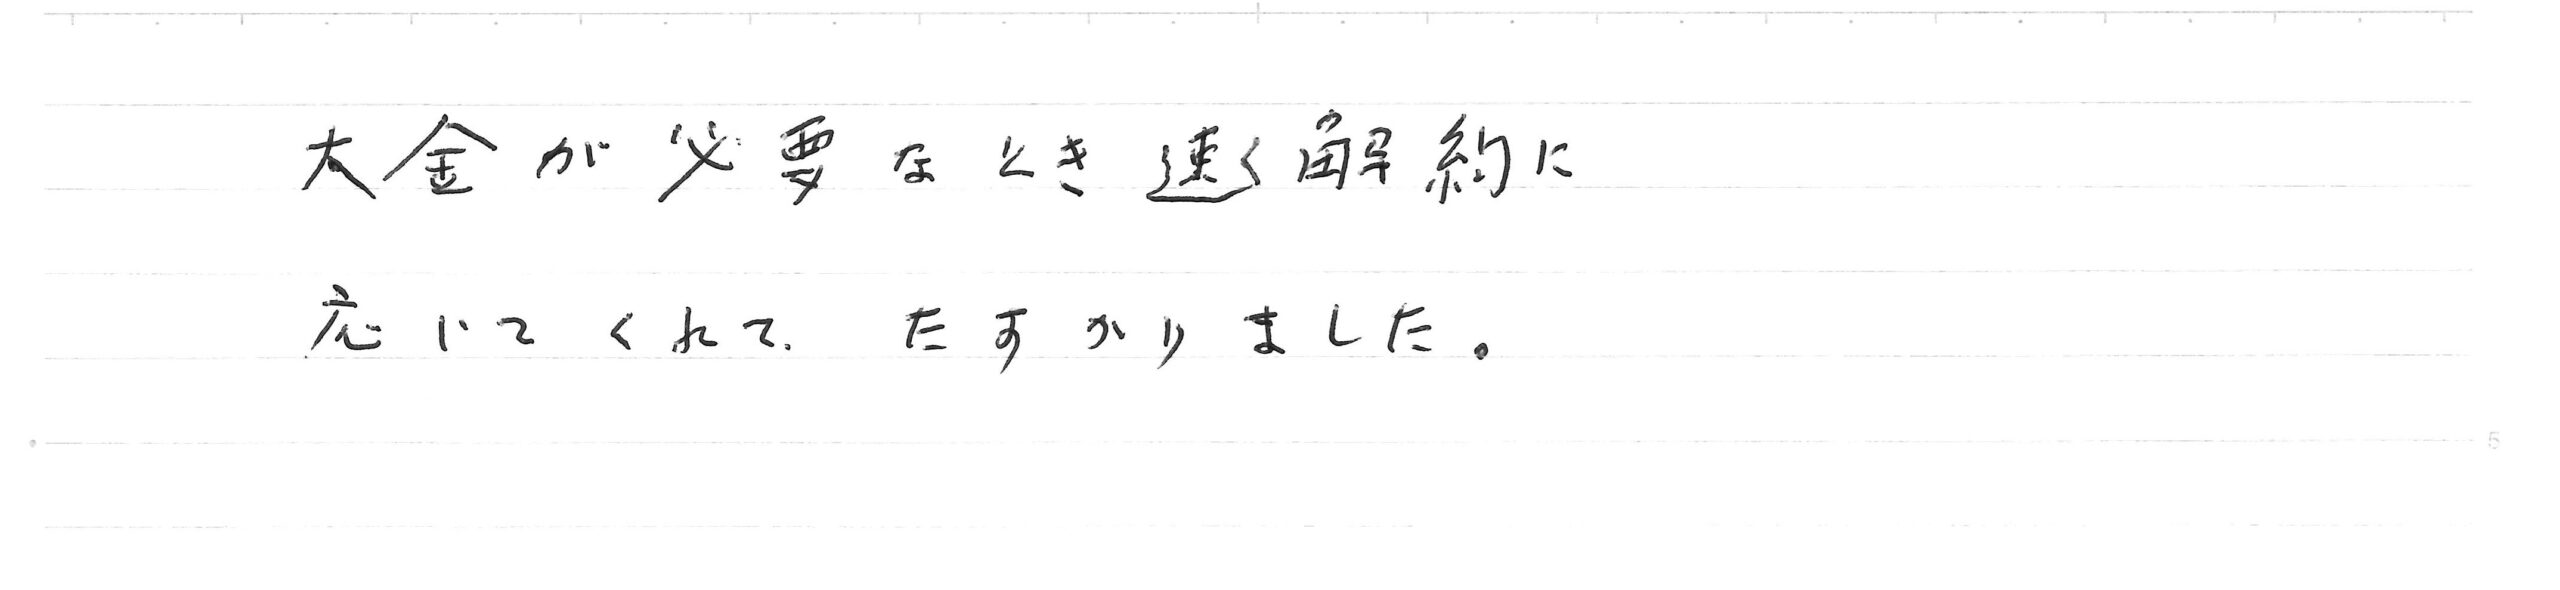 大金が必要なとき速く解約に
応じてくれて、たすかりました。
5